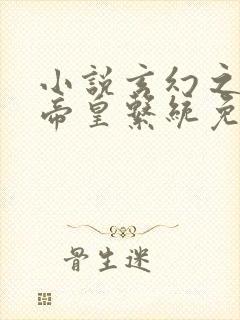 小說玄幻之
帝皇繫統免
骨生迷